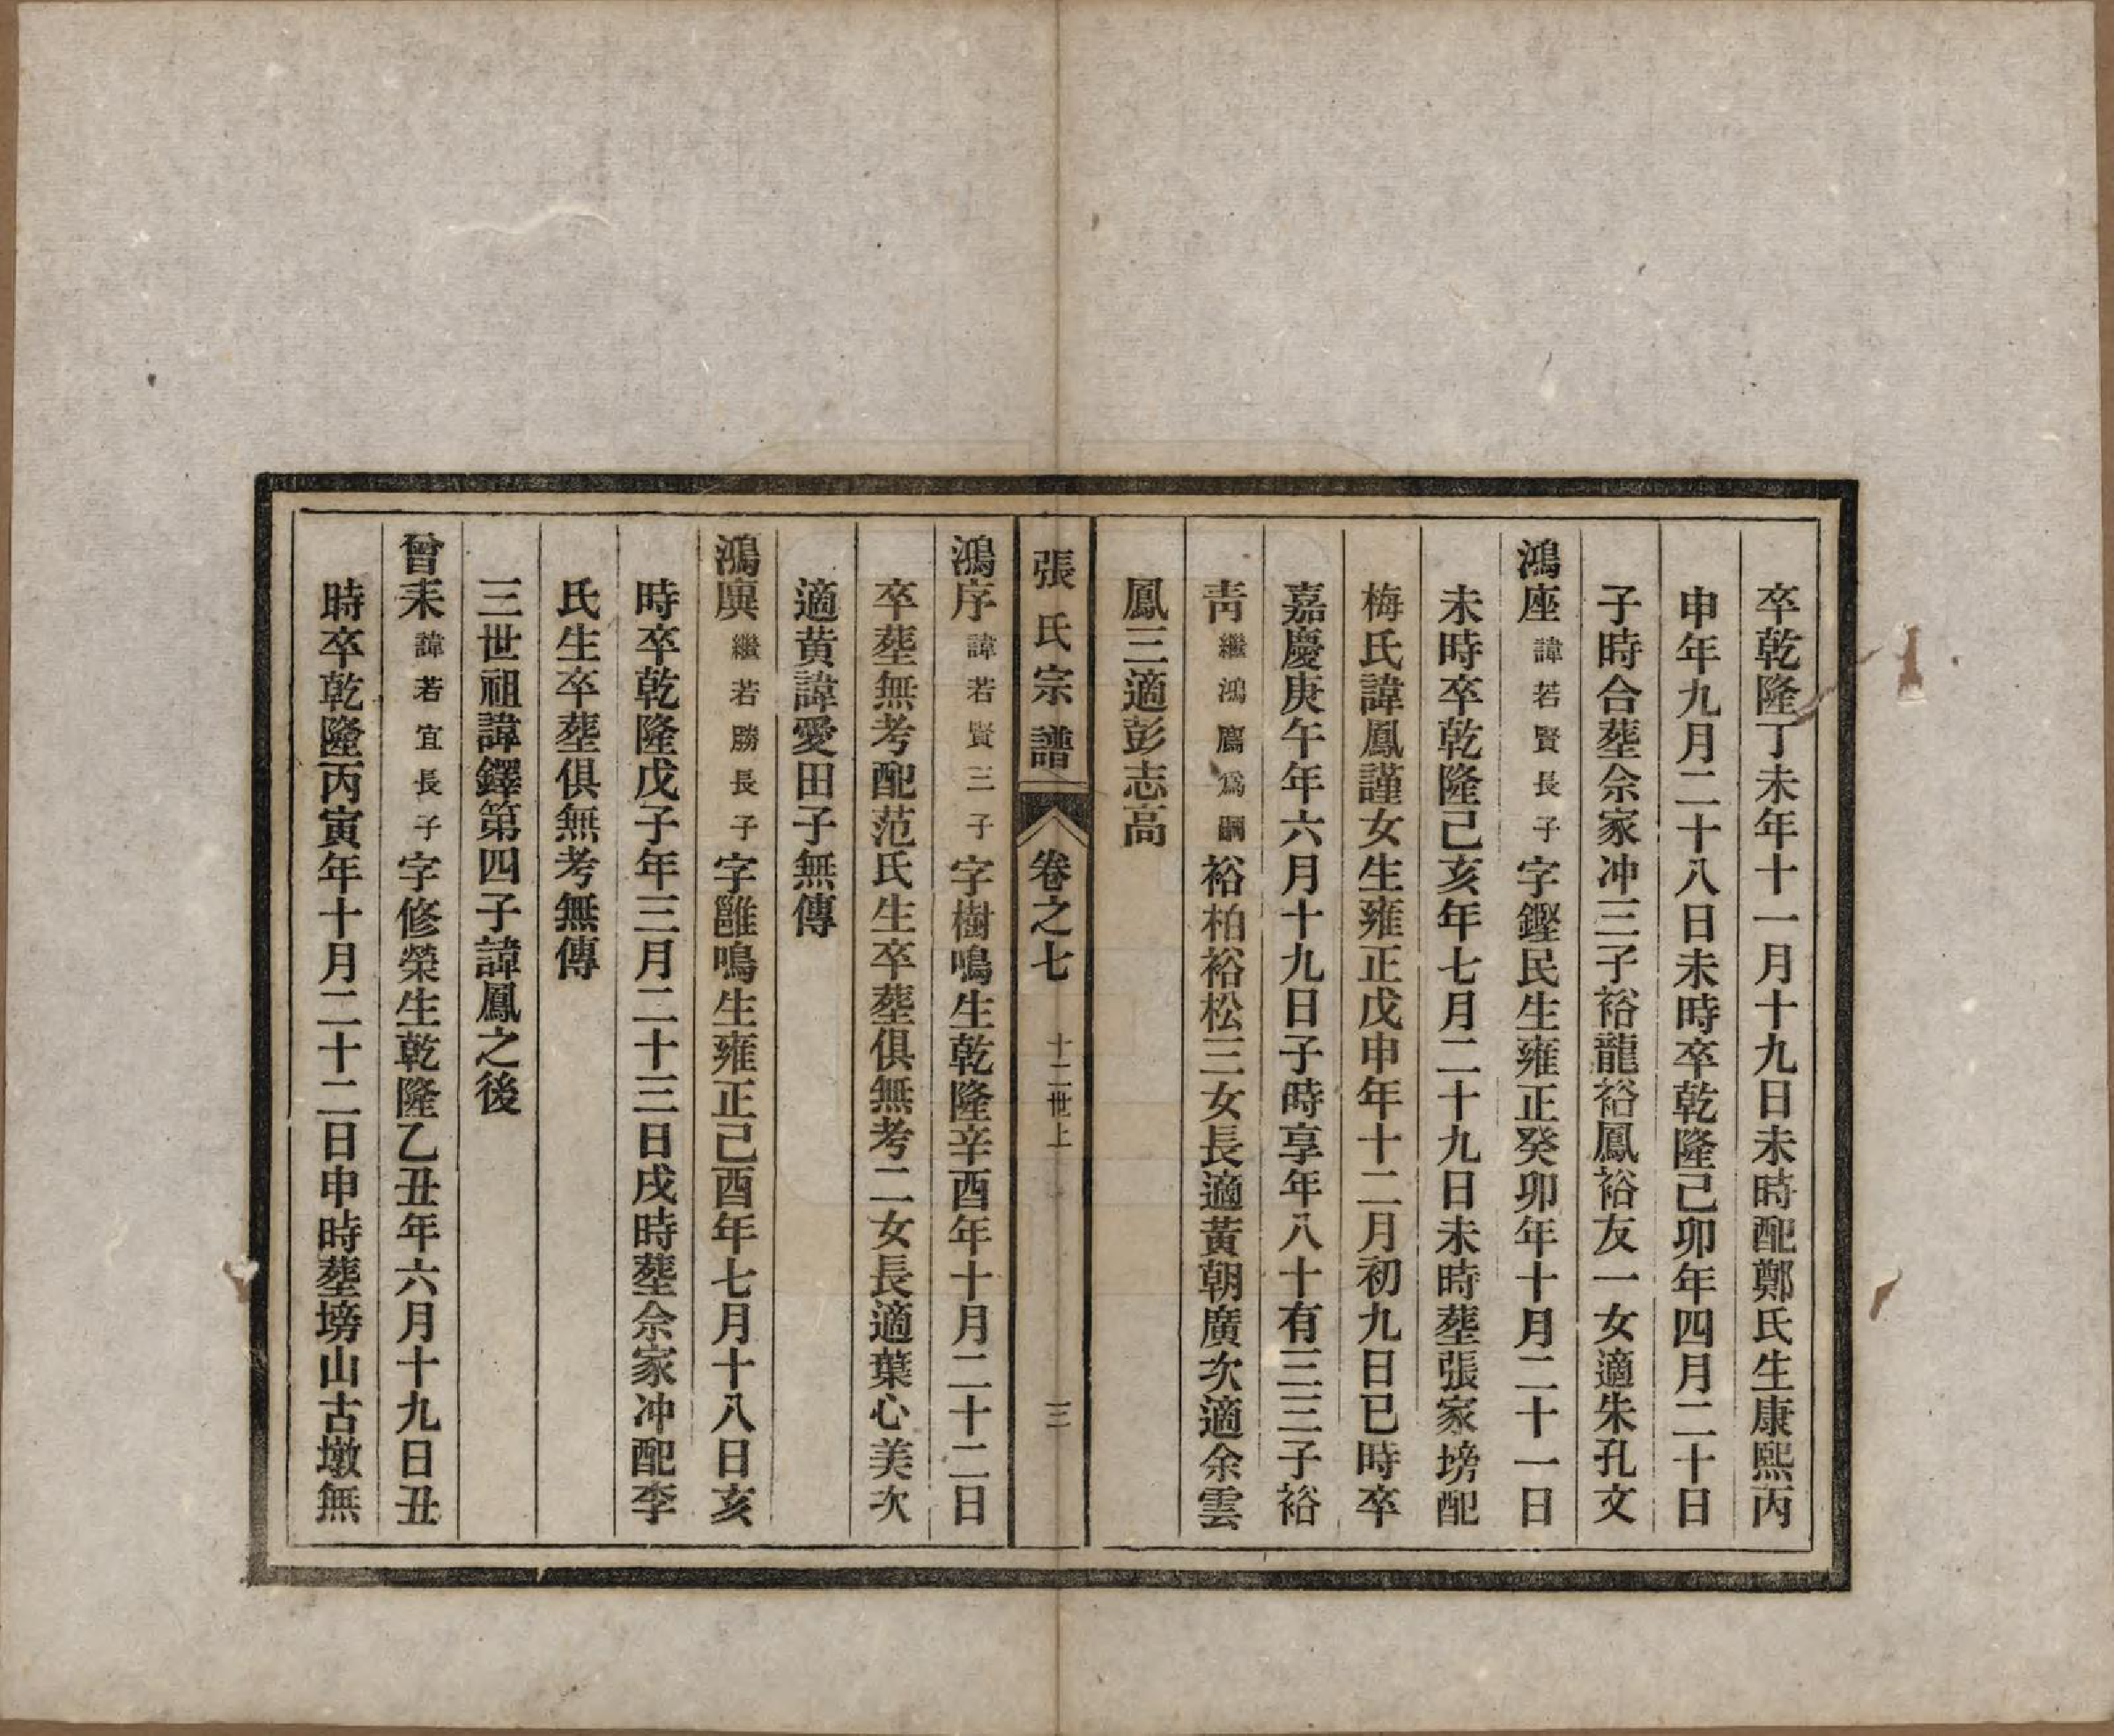 卒乾隆丁未年十一月十九日未時配鄭氏生康熙丙
申年九月二十八日未時卒乾隆己卯年四月二十日
子時合塟佘家冲三子裕龍裕鳳裕友一女適朱孔文
鴻座諱若賢長子字鏗民生雍正癸卯年十月二十一日
未時卒乾隆己亥年七月二十九日未時塟張家塝配
梅氏諱鳳謹女生雍正戊申年十二月初九日巳時卒
嘉慶庚午年六月十九日子時享年八十有三三子裕
青繼鴻鷹爲嗣裕柏裕松三女長適黃朝廣次適余雲
鳳三適彭志高
張氏宗譜 卷之七 十二世上 三
鴻序諱若賢三子字樹鳴生乾隆辛酉年十月二十二日
卒塟無考配范氏生卒塟俱無考二女長適葉心美次
適黄諱愛田子無傳
鴻廙繼若勝長子字雝鳴生雍正己酉年七月十八日亥
時卒乾隆戊子年三月二十三日戌時塟佘家冲配李
氏生卒塟俱無考無傳
三世祖諱鐸第四子諱鳳之後
曾耒諱若宜長子字修榮生乾隆乙丑年六月十九日丑
時卒乾隆丙寅年十月二十二日申時塟塝山古墩無